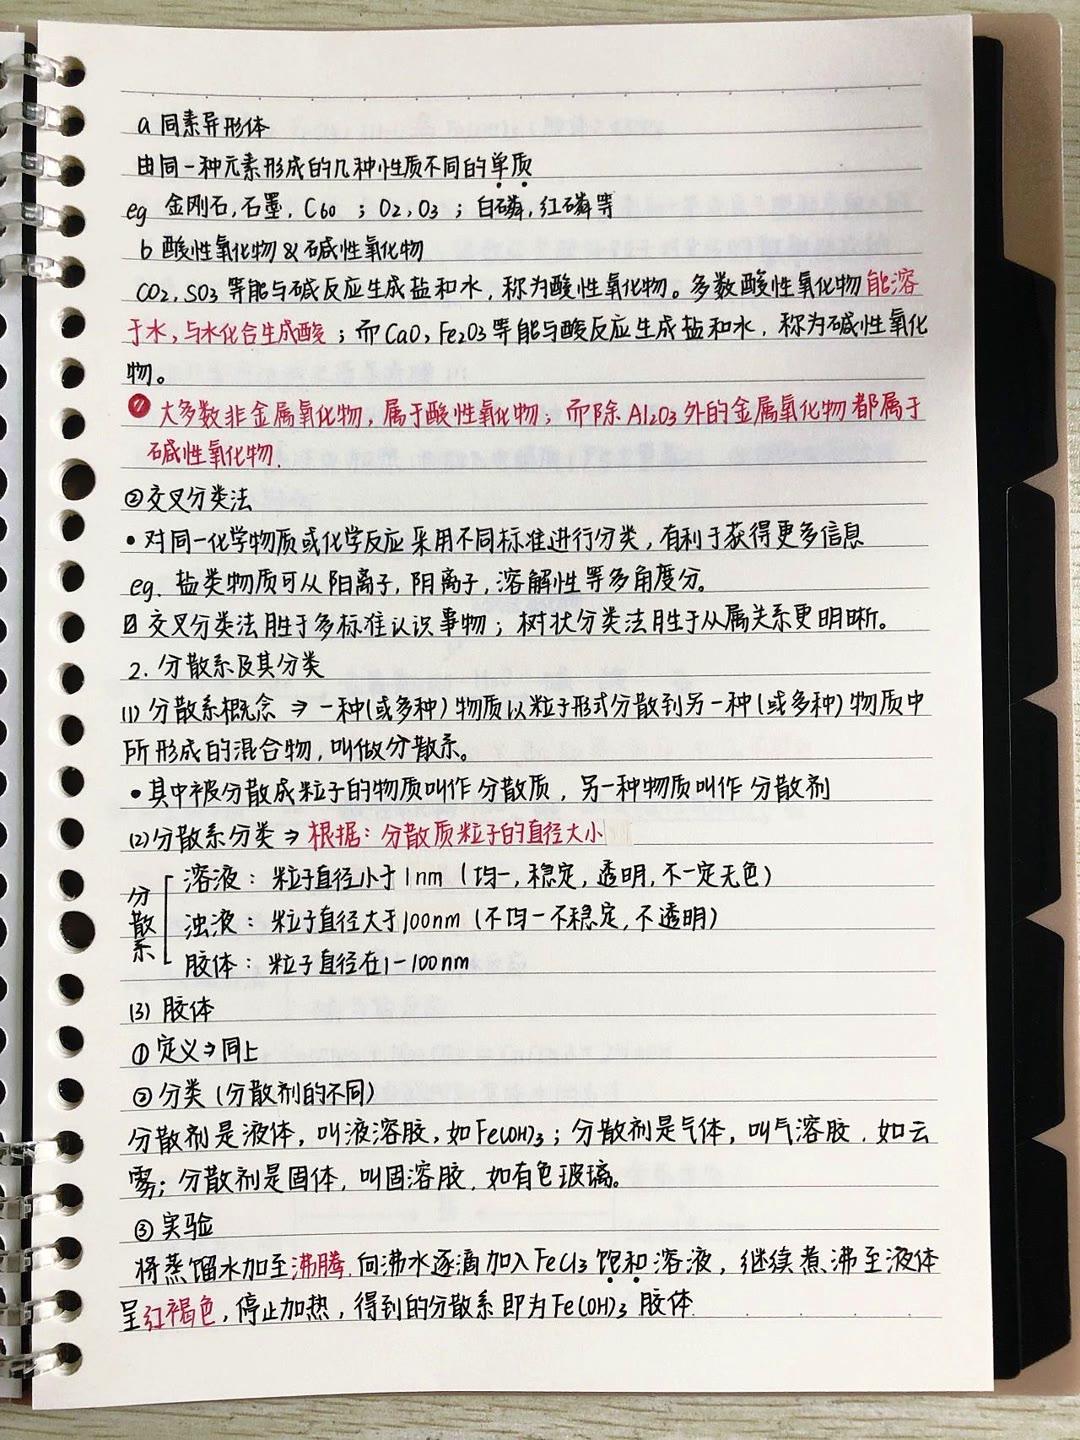 a 同素异形体
由同一种元素形成的几种性质不同的单质
eg 金刚石,石墨, C60 ; O2,O3 ; 白磷,红磷等
b 酸性氧化物 & 碱性氧化物
CO2, SO3 等能与碱反应生成盐和水，称为酸性氧化物。多数酸性氧化物能溶
于水,与水化合生成酸；而CaO, Fe2O3等能与酸反应生成盐和水，称为碱性氧化
物。
大多数非金属氧化物，属于酸性氧化物；而除Al2O3外的金属氧化物都属于
碱性氧化物.
②交叉分类法
• 对同一化学物质或化学反应采用不同标准进行分类，有利于获得更多信息
eg. 盐类物质可从阳离子，阴离子，溶解性等多角度分。
交叉分类法胜于多标准认识事物；树状分类法胜于从属关系更明晰。
2. 分散系及其分类
(1) 分散系概念 ⇒ 一种(或多种)物质以粒子形式分散到另一种(或多种)物质中
所形成的混合物，叫做分散系。
• 其中被分散成粒子的物质叫作分散质，另一种物质叫作分散剂
(2)分散系分类 ⇒ 根据：分散质粒子的直径大小
分散系
溶液：粒子直径小于1nm (均一,稳定,透明,不一定无色)
浊液：粒子直径大于100nm (不均一不稳定,不透明)
胶体：粒子直径在1-100nm
(3) 胶体
①定义⇒同上
②分类 (分散剂的不同)
分散剂是液体，叫液溶胶，如Fe(OH)3；分散剂是气体，叫气溶胶，如云
雾；分散剂是固体，叫固溶胶，如有色玻璃。
③实验
将蒸馏水加至沸腾,向沸水逐滴加入FeCl3饱和溶液，继续煮沸至液体
呈红褐色，停止加热，得到的分散系即为Fe(OH)3胶体.